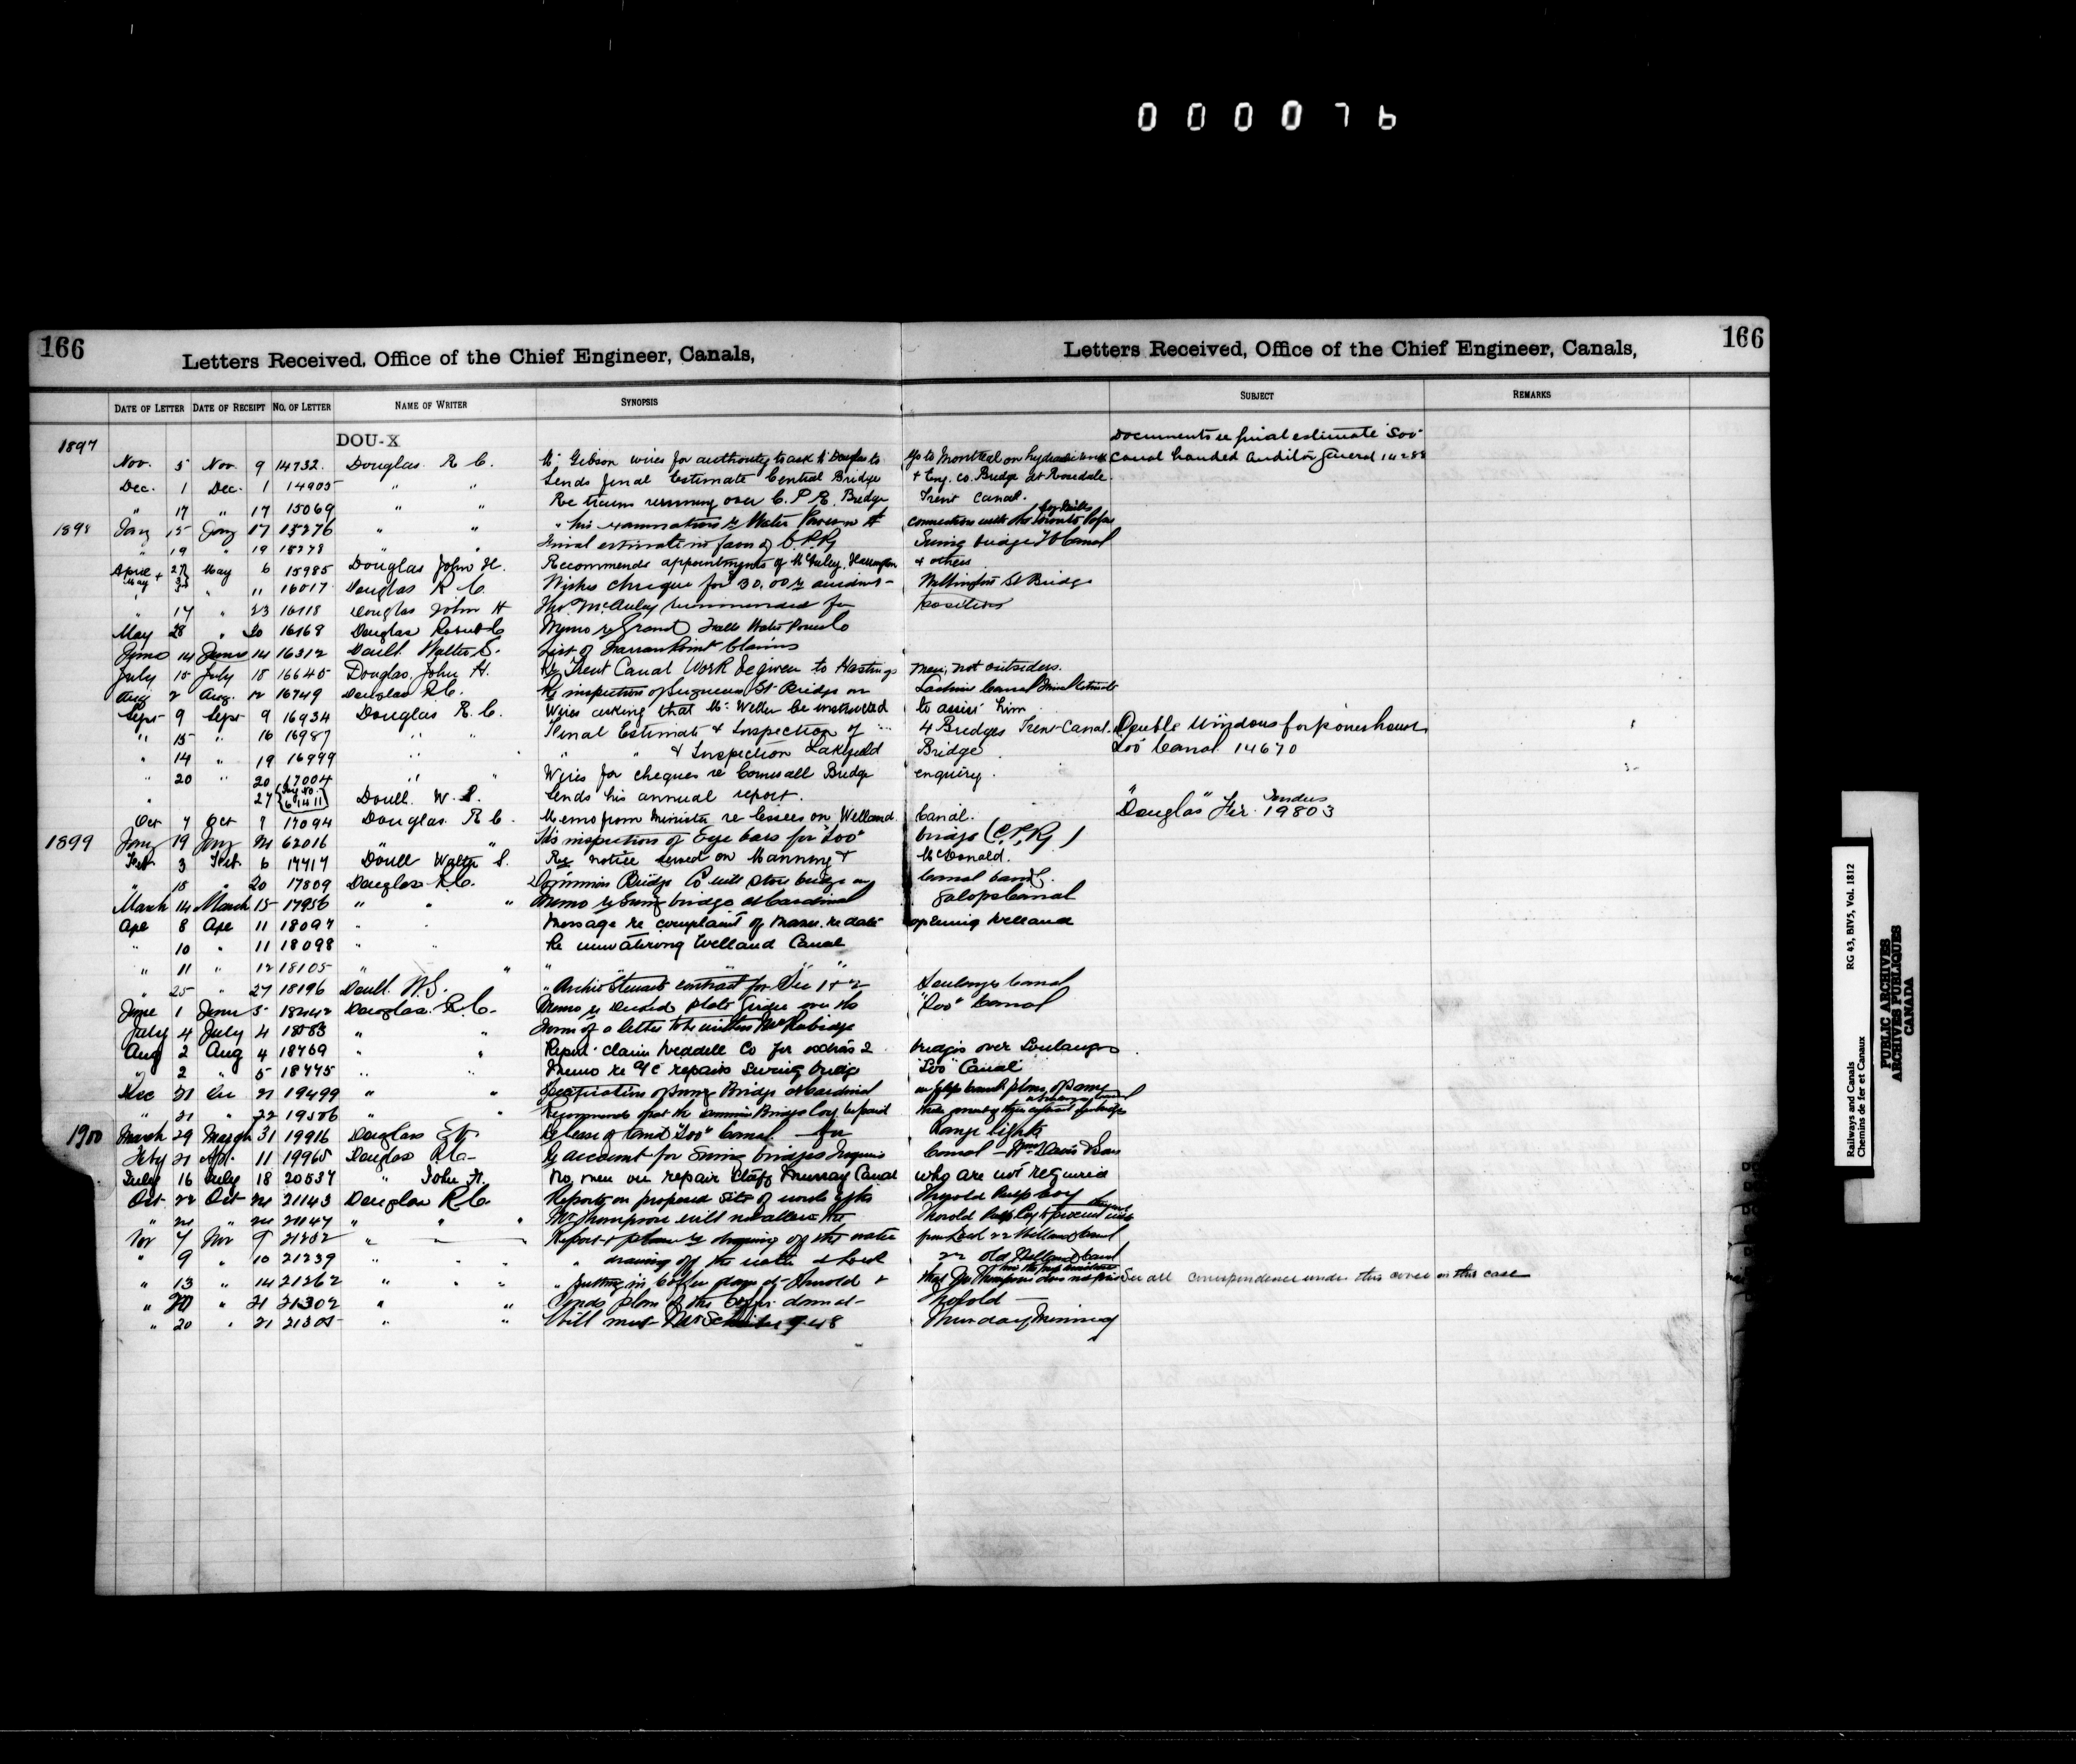 0 0 0 0 7 6
166
Letters Received, Office of the Chief Engineer, Canals,
Letters Received, Office of the Chief Engineer, Canals,
166
DATE OF LETTER DATE OF RECEIPT NO. OF LETTER NAME OF WRITER SYNOPSIS SUBJECT REMARKS
1897 DOU-X Documents re final estimate "Soo"
Nov. 5 Nov. 9 14732. Douglas R C. Mr Gibson wires for authority to ask Mr Douglas to go to Montreal on Canal handed Auditor General
Dec. 1 Dec. 1 14905 " " Sends final Estimate Central Bridge + Eng. Co. Bridge at Rosedale.
" 17 " 17 15069 " " Re trains running over C. P. R. Bridge Trent Canal.
1898 Jany 15 Jany 17 15276 " " " his examination re Water Power connection with the Toronto
" 19 " 19 " " Final estimate in favor of C.P.R. Swing bridge Canal
April 27 + May 3 May 6 15985 Douglas John H. Recommends appointments of McAuley, & others
" 11 16017 Douglas R C. Wishes cheque for $30.00 re Wellington St Bridge
" 17 " 23 16118 Douglas John H Thos. McAuley recommended for position
May 28 " 30 16169 Douglas Robert C Memo re Grand Falls Water Power Co
June 14 June 14 16312 Doull Walter S. List of Farran Point Claims
July 15 July 18 16645 Douglas, John H. Re Trent Canal Work be given to Hastings men, not outsiders.
Aug 2 Aug. 12 16749 Douglas R C. Re inspection of St Bridge on Lachine Canal Final Estimate
Sept 9 Sept 9 16934 Douglas R. C. Wires asking that Mr Weller be instructed to assist him
" 15 " 16 16987 " " Final Estimate & Inspection of 4 Bridges Trent Canal. Double Windows for power house
" 14 " 19 16999 " " " " & Inspection Lakefield Bridge Soo Canal 14670
" 20 " 20 17004 " " Wires for cheques re Cornwall Bridge enquiry.
" 27 Doull. W. S. Sends his annual report. "Douglas" Fir. Tenders 19803
Oct 7 Oct 17094 Douglas R C. Memo from Minister re lessees on Welland Canal.
1899 Jany 19 Jany 21 62016 " " His inspection of Eye bars for "Soo" bridge (C.P.R.)
Feb 3 Feb 6 17717 Doull Walter S. Re notice served on Manning & McDonald.
" 18 " 20 17809 Douglas R C. Dominion Bridge Co will store bridge on Canal bank.
March 14 March 15 17956 " " " Memo re Swing bridge at Cardinal Galops Canal
Apl 8 Apl 11 18097 " " Message re complaint of re date opening Welland
" 10 " 11 18098 " " Re unwatering Welland Canal
" 11 " 12 18105 " " " " "
" 25 " 27 18196 Doull. W.S. " Archie Stewarts contract for Sec 1 & 2 Soulanges Canal
June 1 June 5 Douglas. R. C. Memo re plate Girder over the "Soo" Canal
July 4 July 4 18583 " " Form of a letter to be written Mr Rubidge
Aug 2 Aug 4 18769 " " Report claim Weddell Co for extras 2 bridges over Soulanges
" 2 " 5 18775 " " Memo re repairs swing bridge "Soo" Canal
Dec 21 Dec 21 19499 " " Specification of Swing Bridge at Cardinal
" 21 " 22 " " Recommends that the Dominion Bridge Coy be paid
1900 March 29 March 31 19916 Douglas Release of land "Soo" Canal for Range lights
Feby 21 Apl. 11 19965 Douglas R.C. Re account for Swing bridges Iroquois Canal - Wm Davis & Sons
July 16 July 18 20537 " John H. No. men on repair staff Murray Canal who are not required
Oct. 22 Oct 24 21143 Douglas R. C. Reports on proposed site of works of the Thorold Pulp Coy
" 24 " 24 21147 " " " Mr Thompson will not allow the Thorold Pulp Coy to proceed with
Nov 7 Nov 9 " " Report & plans re drawing off the water from Lock 22 Welland Canal
" 9 " 10 21239 " " " drawing off the water at Lock 22 old Welland Canal
" 13 " 14 21262 " " " " putting in coffer dam at Thorold & that Mr Thompson does not See all correspondence under this cover on this case
" 20 " 21 21302 " " Sends plan of the coffer dam at Thorold
" 20 " 21 21305 " " Will meet Mr Schreiber 9.48 Thursday Morning
Railways and Canals RG 43, BIV5, Vol. 1812
Chemins de fer et Canaux
PUBLIC ARCHIVES
ARCHIVES PUBLIQUES
CANADA